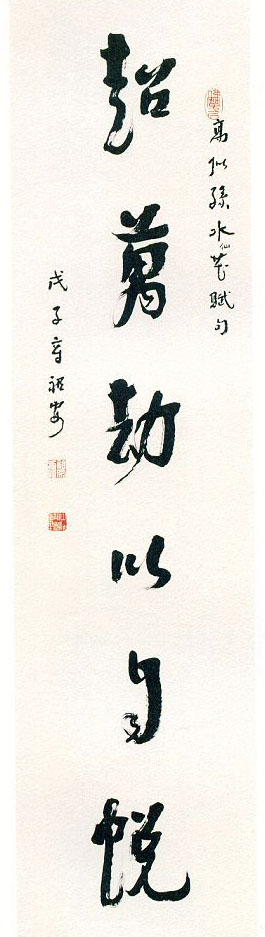 高似孫水仙花賦句
超萬劫以自悦
戊子章祖安